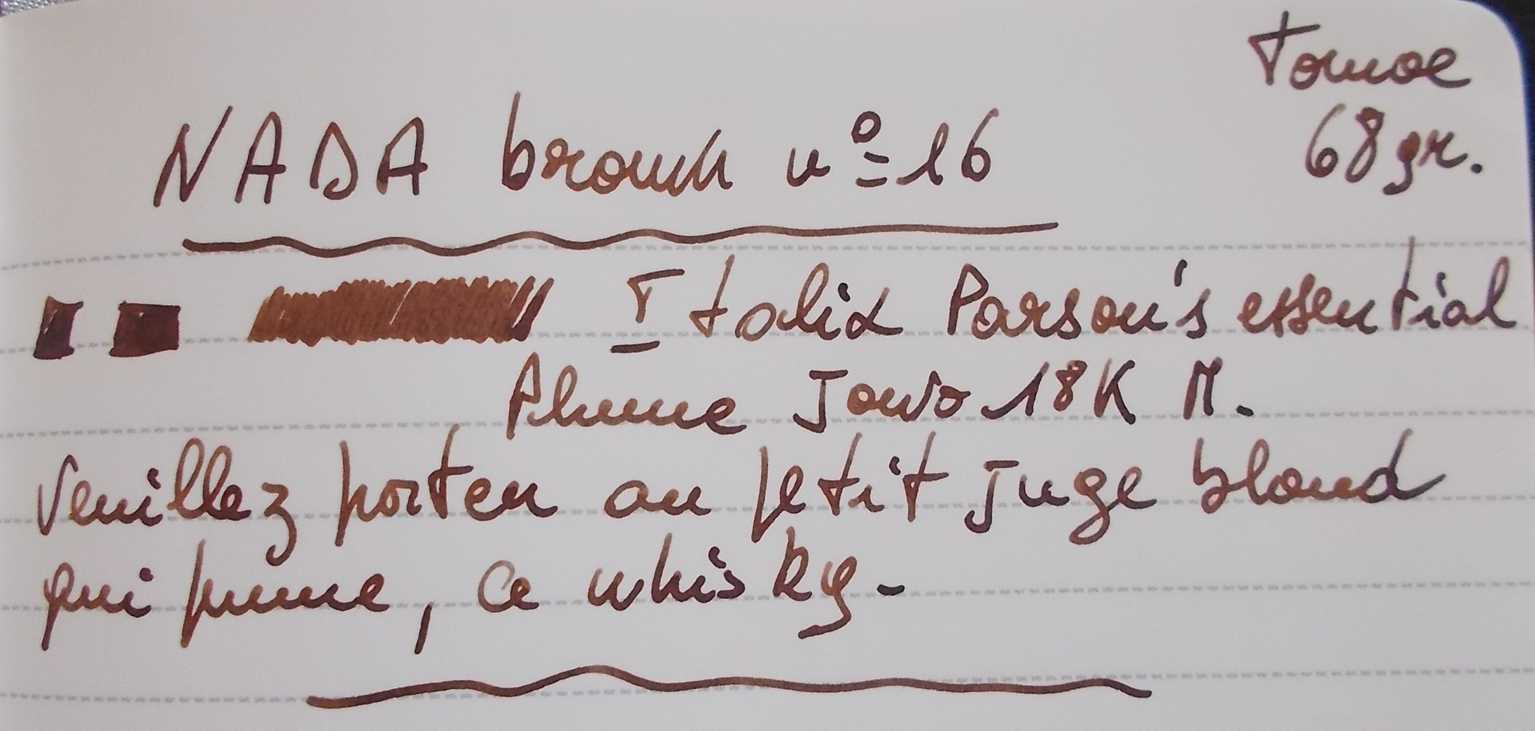 Tomoe
68 gr.
NADA brown nº 16
Italix Parson's essential
Plume Jowo 18K M.
Veuillez porter au petit juge blond
qui fume, ce whisky-